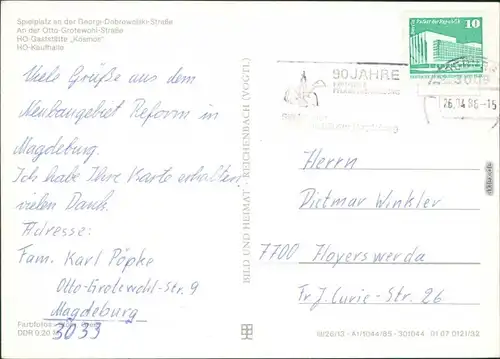 Spielplatz an der Georgi-Dobrowolski-Straße
An der Otto-Grotewohl-Straße
HO-Gaststätte „Kosmos“
HO-Kaufhalle
Viele Grüße aus dem
Neubaugebiet Reform in
Magdeburg.
Ich habe Ihre Karte erhalten,
vielen Dank.
Adresse:
Fam. Karl Pöpke
Otto-Grotewohl-Str. 9
Magdeburg
3033
DDR 0,20 M
BILD UND HEIMAT · REICHENBACH (VOGTL)
10
90 JAHRE
26.04.86-15
Herrn
Dietmar Winkler
7700 Hoyerswerda
Fr. J. Curie-Str. 26
III/26/13 · A1/1044/85 · 301044 01 07 0121/32